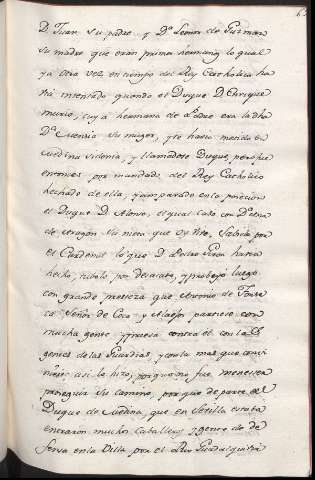 D. Juan su padre, y D.ª Leonor de Guzman
su madre que eran primos hermanos, lo qual
ya otra vez en tiempo del Rey Catholico ha
via intentado quando el Duque D. Enrique
murio, cuya hermana de Pedro era la dha
D.ª Mencia su muger, y se havia metido en
Medina Sidonia, y llamadose Duque, pero fue
entonces por mandado del Rey Catholico
hechado de ella, y amparado en la posesion
el Duque D. Alonso, el qual caso con D.ª Ana
de Aragon su nieta que
el Cardenal lo que D. Pedro Giron havia
hecho, tubolo por desacato, y proveyó luego
con grande presteza que Antonio de Fonse
ca Señor de Coca y Alaejos partiese con
mucha gente, y fuese contra el con la
gente de las Guardias, y con la mas que convi
niese; asi lo hizo, porque no fue menester
proseguir su camino, porque de parte del
Duque de Medina, que en Sevilla estaba
entraron muchos Caballeros y gente de de
fensa en la Villa por el Rio Guadalquivir